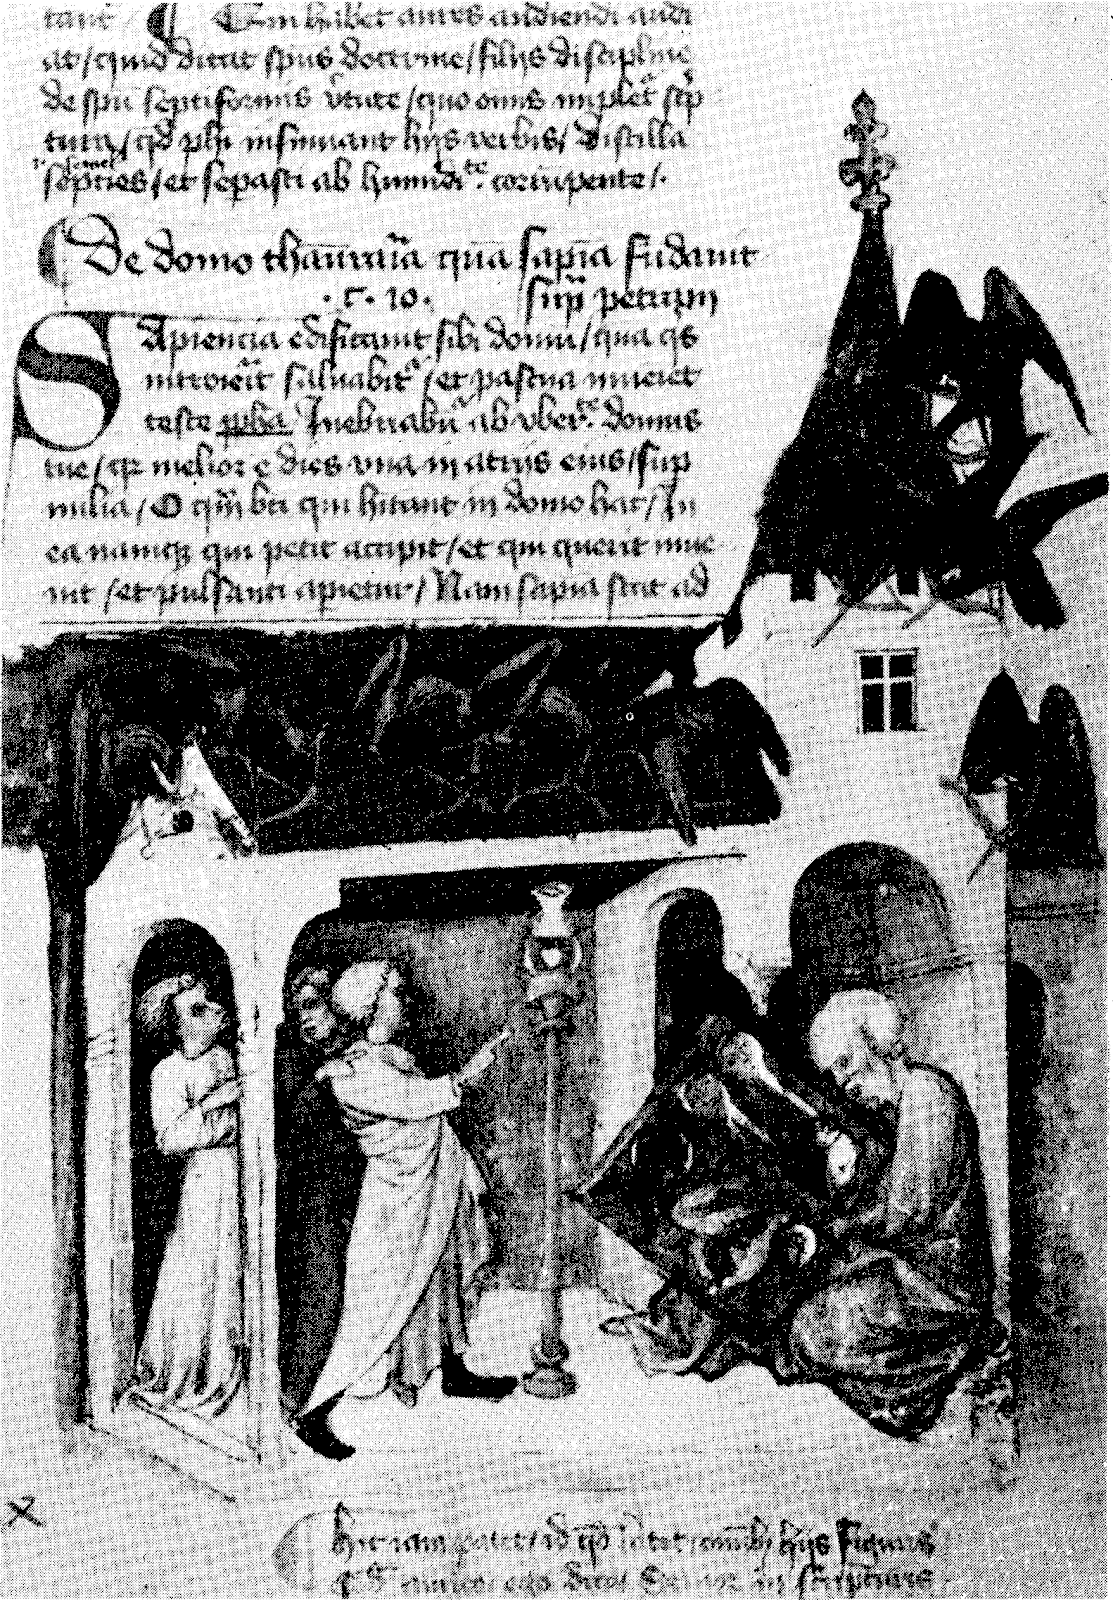 Qui habet aures audiendi audi
at / quid dicat spūs doctrine / filijs discipline
de spū septiformis v̄tute / quo om̄is implet᷑ sc̄p
tura / qd̄ phī insinuant hijs verbis / Distilla
septies / et sepasti ab humidite corrumpente / .
De domo thauraria qua sapīa fūdauit
. c. 10. sup̄ petram
Sapiencia edificauit sibi domū / qua q̄s
introierit saluabit᷑ / et pascua inueniet
teste ꝓpha Inebriabūt᷑ ab vberte domus
tue / qꝛ melior ē dies vna in atrijs eius / sup
milia / O q̄m bti qui hītant in domo hac / In
ea namqꝫ qui petit accipit / et qui querit inue
nit / et pulsanti apietur / Nam sapīa stat ad
hic iam patet / id qd̄ latet / hijs figuris
ego in scripturis